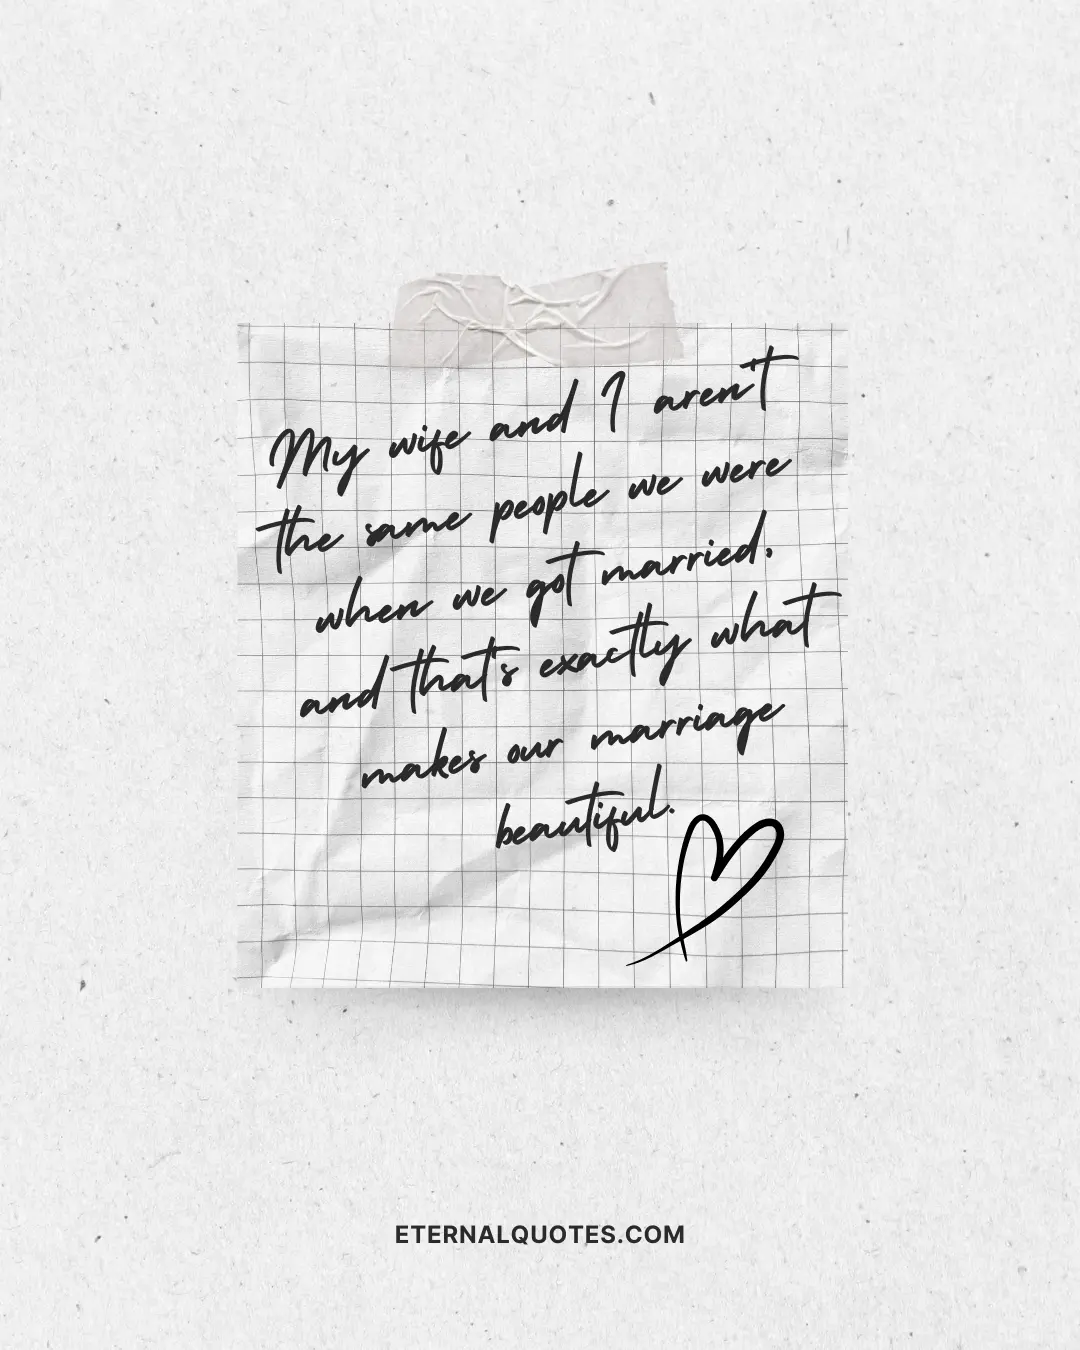 My wife and I aren't
the same people we were
when we got married,
and that's exactly what
makes our marriage
beautiful.
ETERNALQUOTES.COM